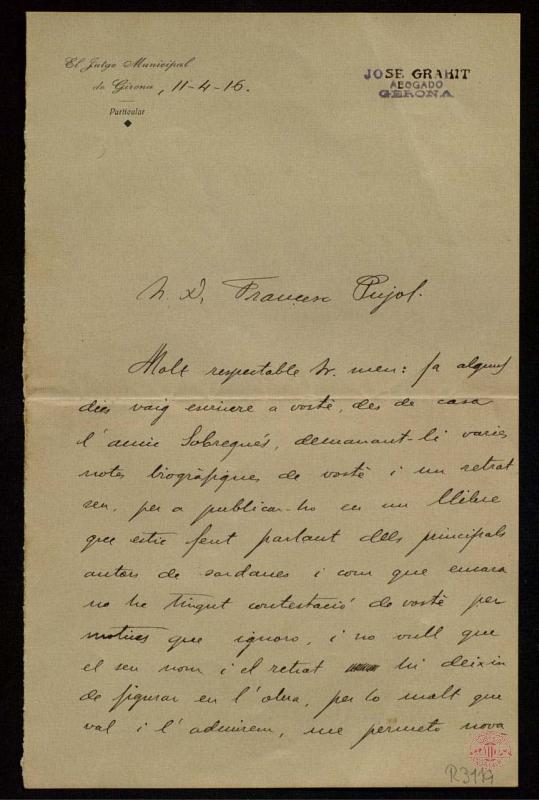 El Jutge Municipal
de Girona, 11-4-16.
Particular
JOSE GRAHIT
ABOGADO
GERONA
Francesc Pujol.
Molt respectable Sr. meu: fa alguns
dies vaig escriure a vostè, des de casa
l'amic Sobrequés, demanant-li varies
notes biogràfiques de vostè i un retrat
seu, per a publicar-ho en un llibre
que estic fent parlant dels principals
autors de sardanes i com que encara
no he tingut contestació de vostè per
motius que ignoro, i no vull que
el seu nom i el retrat hi deixin
de figurar en l'obra, per lo molt que
val i l'admirem, me permeto nova
R3119